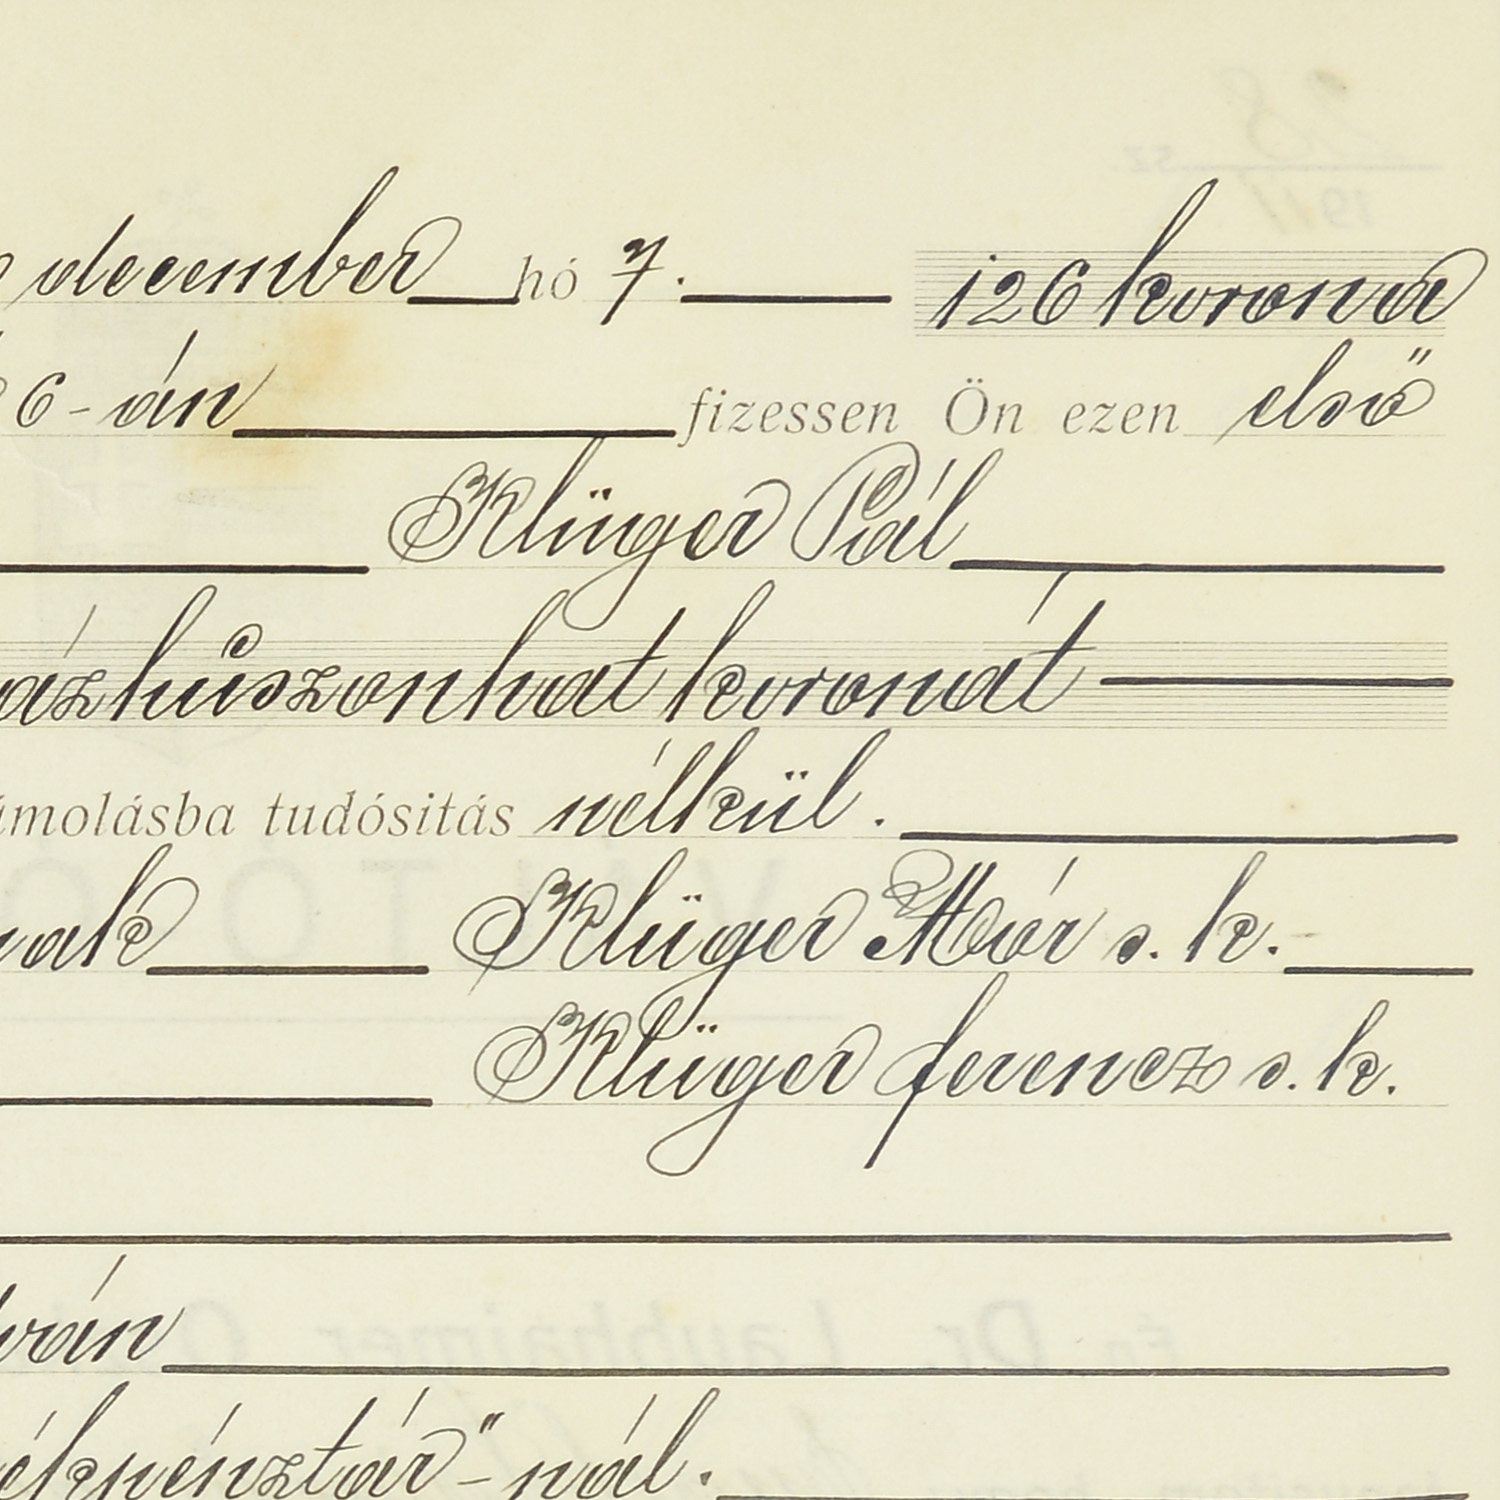 december hó 7. 126 korona
6-án fizessen Ön ezen első
Klüger Pál
áz húszonhat koronát
ámolásba tudósitás nélkül.
nak Klüger Mór s. k.
Klüger ferencz s. k.
ván
ékpénztár"-nál.